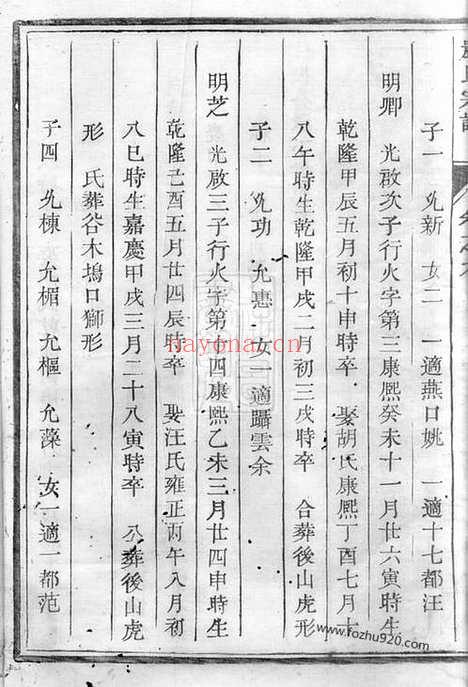 子一 允新 女二 一適燕口姚 一適十七都汪
明卿 光啟次子行火字第三康熙癸未十一月廿六寅時生
乾隆甲辰五月初十申時卒 娶胡氏康熙丁酉七月十
八午時生乾隆甲戌二月初三戌時卒 合葬後山虎形
子二 允功 允惠 女一適躡雲余
明芝 光啟三子行火字第四康熙乙未三月廿四申時生
乾隆己酉五月廿四辰時卒 娶汪氏雍正丙午八月初
八巳時生嘉慶甲戌三月二十八寅時卒 公葬後山虎
形 氏葬谷木塢口獅形
子四 允棟 允楣 允樞 允藻 女一適一都范
nayona.cn
www.fozhu920.com